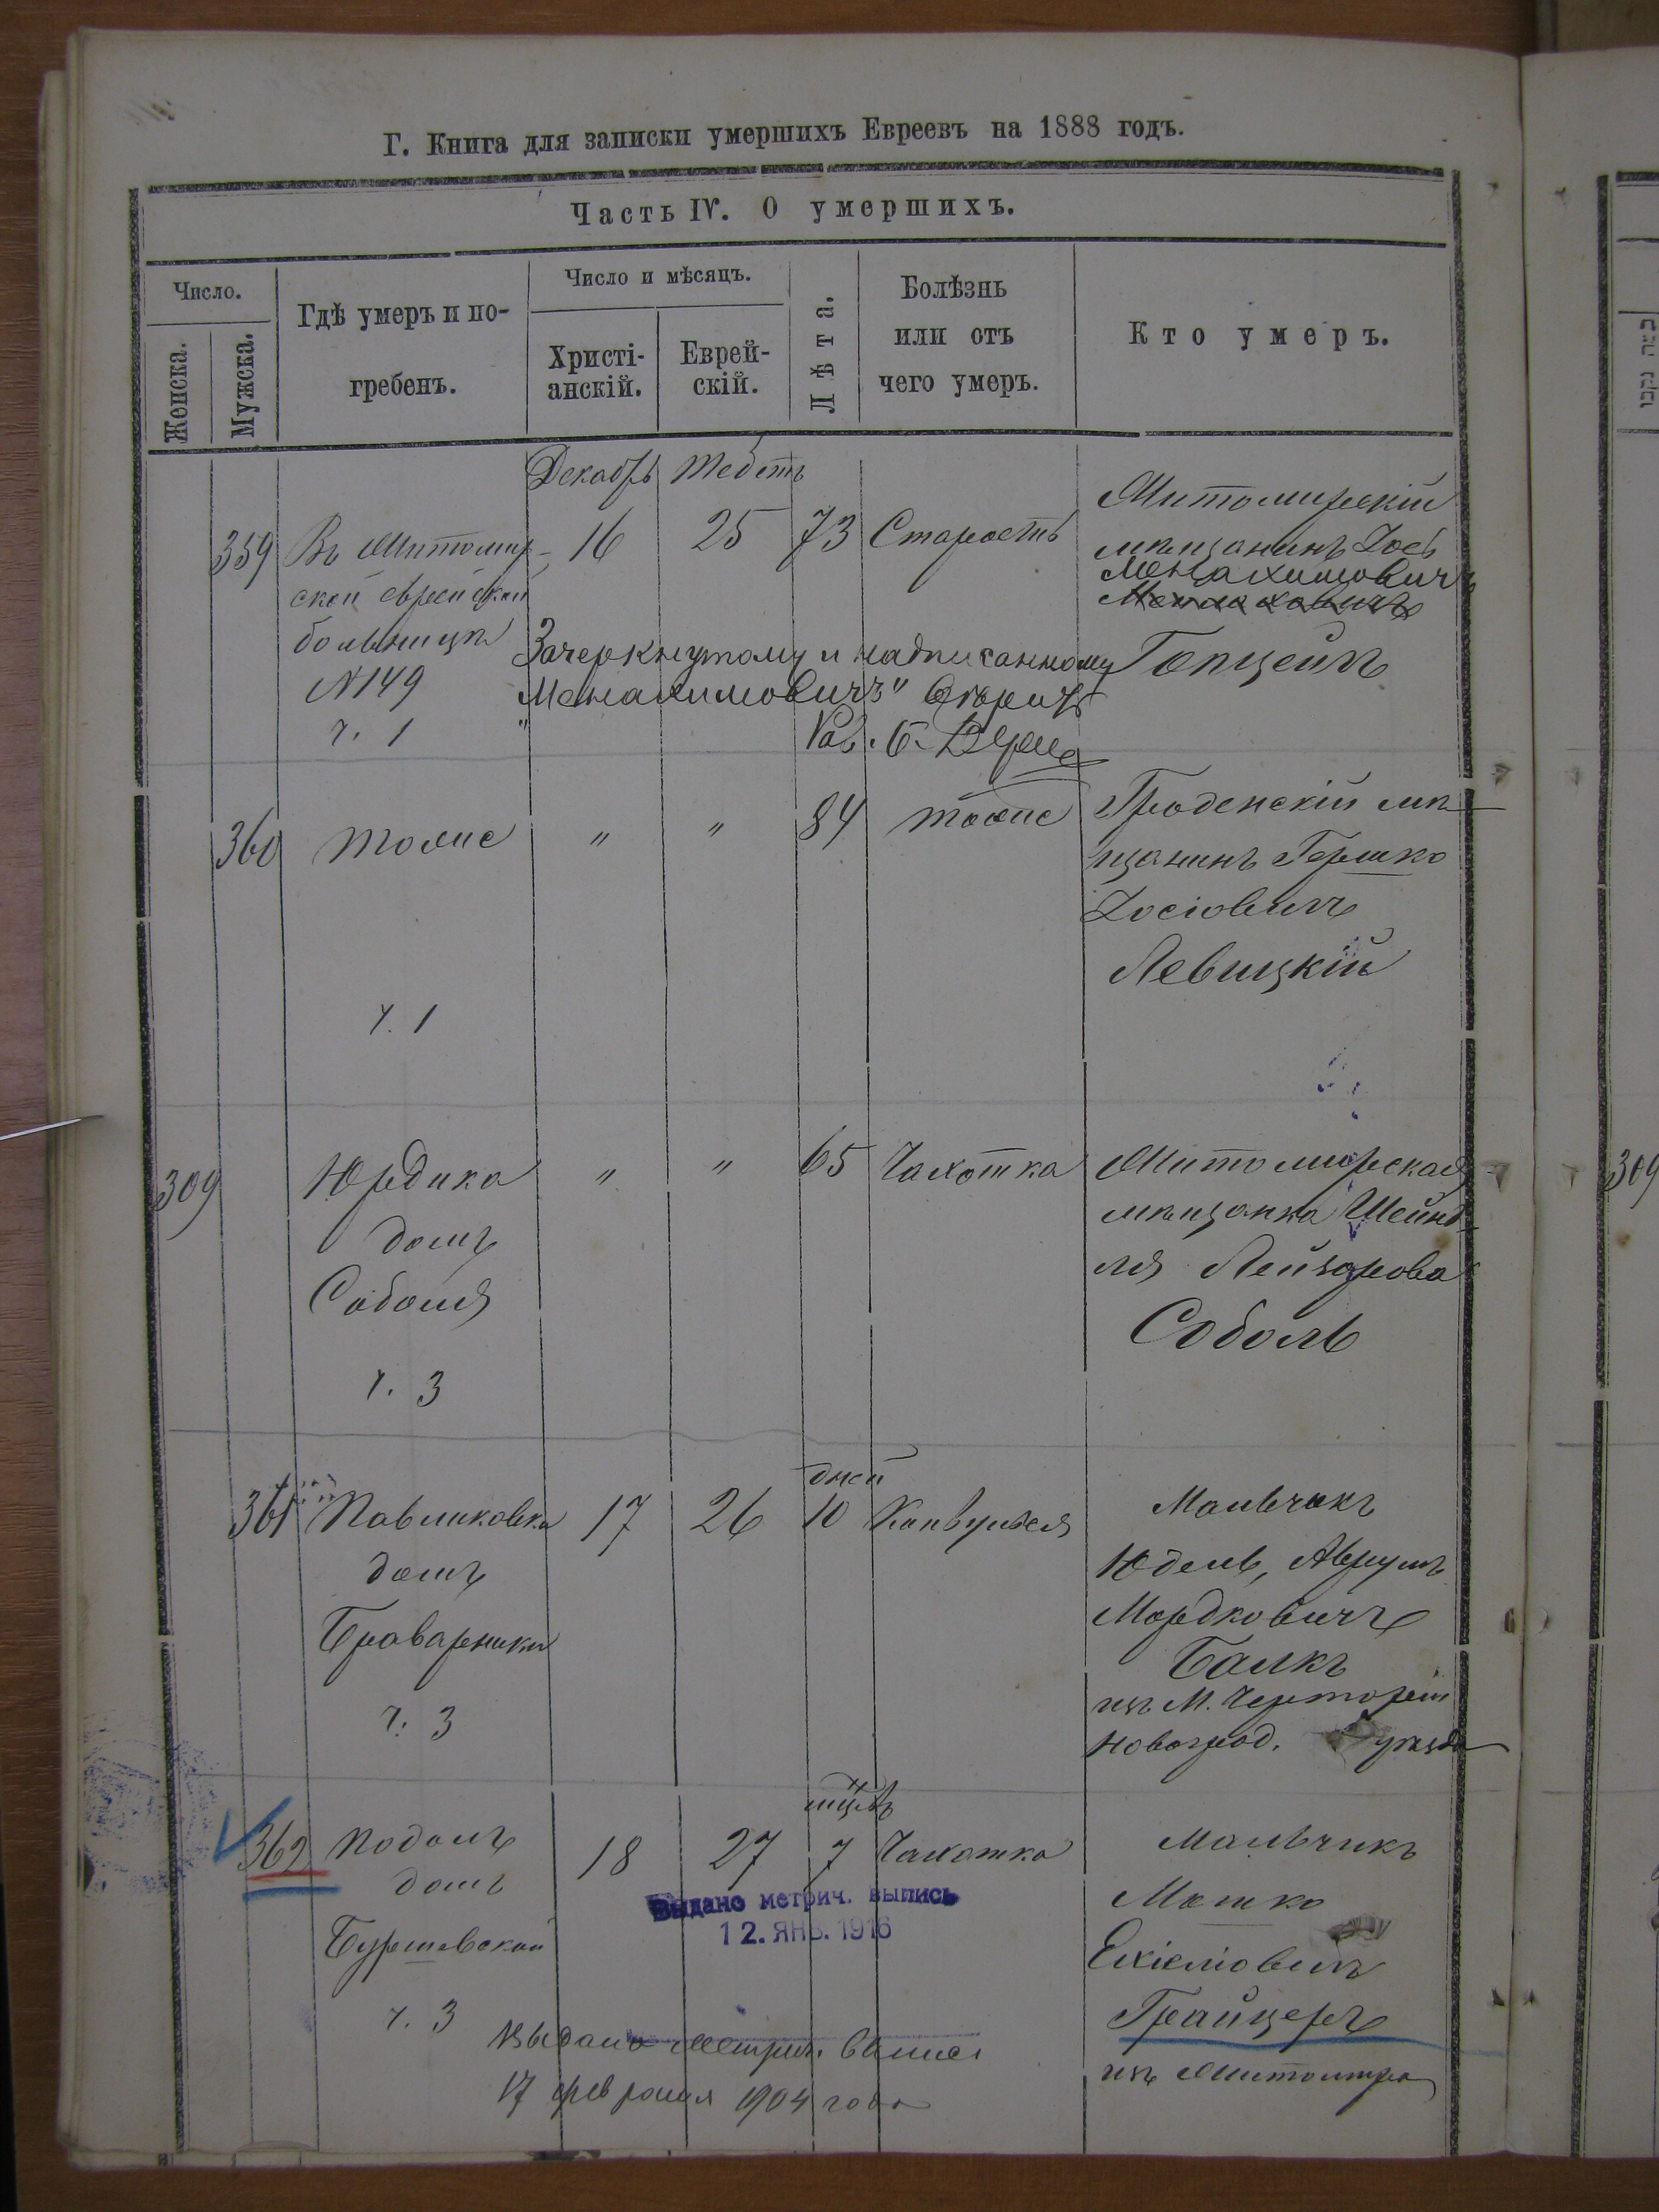 Г. Книга для записки умершихъ Евреевъ на 1888 годъ.
Часть IV. О умершихъ.
Число.
Женска.
Мужска.
Гдѣ умеръ и по-
гребенъ.
Число и мѣсяцъ.
Христі-
анскій.
Еврей-
скій.
Лѣта.
Болѣзнь
или отъ
чего умеръ.
Кто умеръ.
Декабрь Тебетъ
359 Въ Житомир- 16 25 73 Старость
ской еврейской
больницѣ
№ 149
ч. 1
Житомирскій
мѣщанинъ Іось
Менахимовичъ
Гопцейнъ
Зачеркнутому и надписанному
"Менахимовичъ" вѣрить
Рав. Б.
360 тоже " " 84 тоже
ч. 1
Гроденскій мѣ-
щанинъ Гершко
Іосіовичъ
Левицкій
309 Юрдика " " 65 Чахотка
домъ
Соболя
ч. 3
Житомирская
мѣщанка Шейнд-
ля Лейзорова
Соболь
дней
361 Павликовка 17 26 10 Конвульсія
домъ
Броварника
ч. 3
Мальчикъ
Юдель, Аврумъ
Мордковичъ
Балкъ
изъ М. Черторіи
Новоград. уѣзда
мѣц.
362 Подолъ 18 27 7 Чахотка
домъ
ч. 3
Мальчикъ
Мошко
Ехіеліовичъ
Грайцеръ
изъ Житомира
Выдано метрич. выпись
12. ЯНВ. 1916
Выдано метрич. выпись
17 февраля 1904 года
כמה נקבו
309